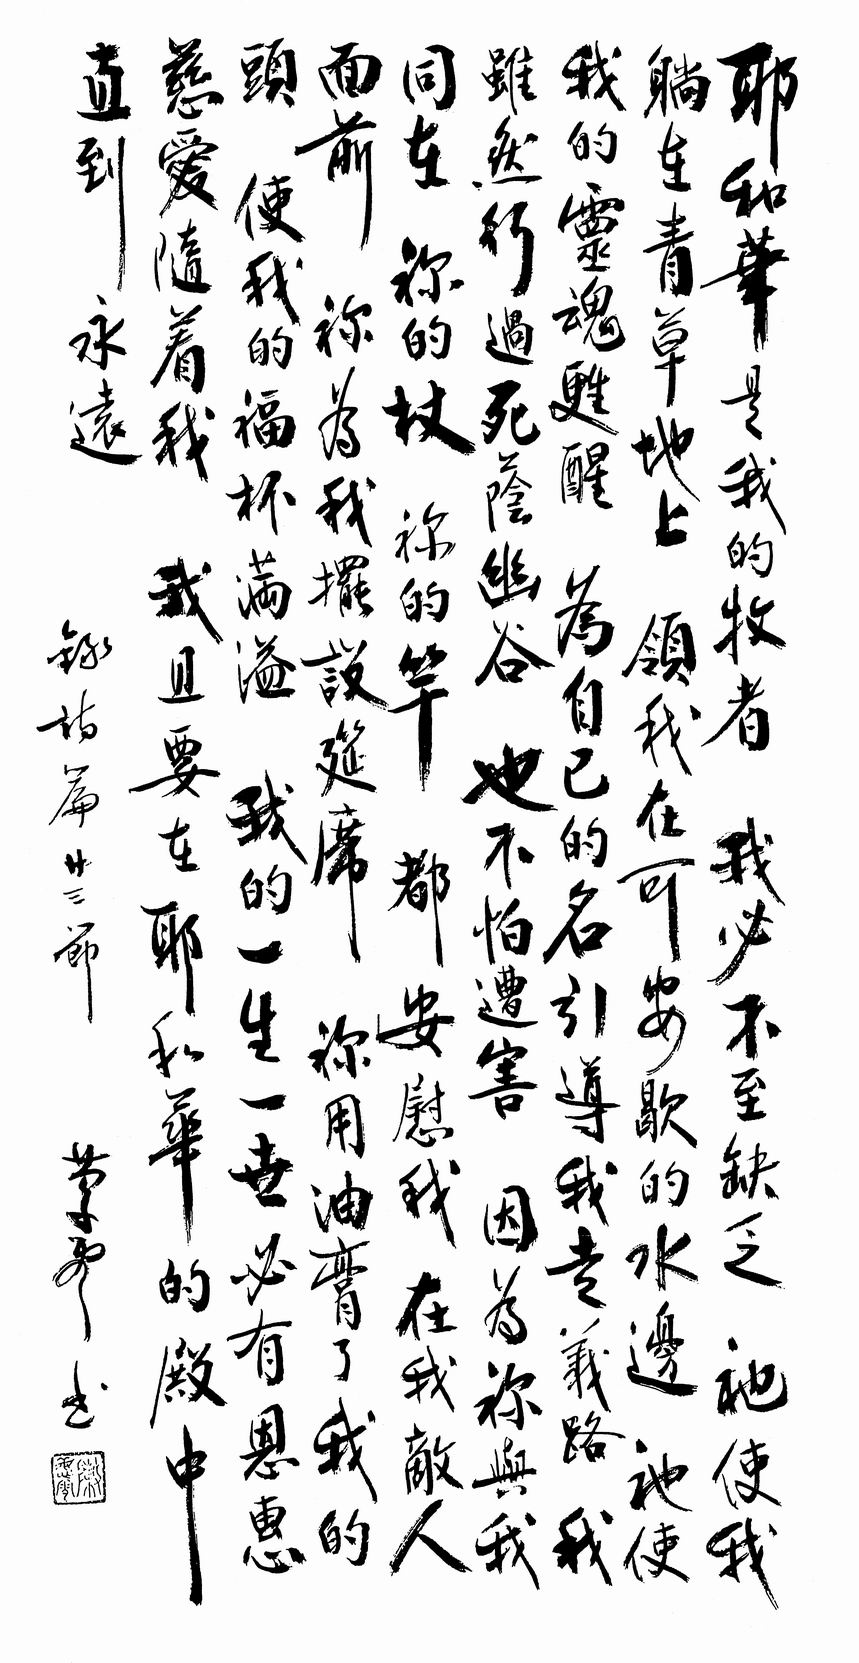 耶和華是我的牧者 我必不至缺乏 祂使我
躺在青草地上 領我在可安歇的水邊 祂使
我的靈魂甦醒 為自己的名引導我走義路 我
雖然行過死蔭幽谷 也不怕遭害 因為祢與我
同在 祢的杖 祢的竿 都安慰我 在我敵人
面前 祢為我擺設筵席 祢用油膏了我的
頭 使我的福杯滿溢 我的一生一世必有恩惠
慈愛隨着我 我且要在耶和華的殿中
直到永遠
錄詩篇廿三節